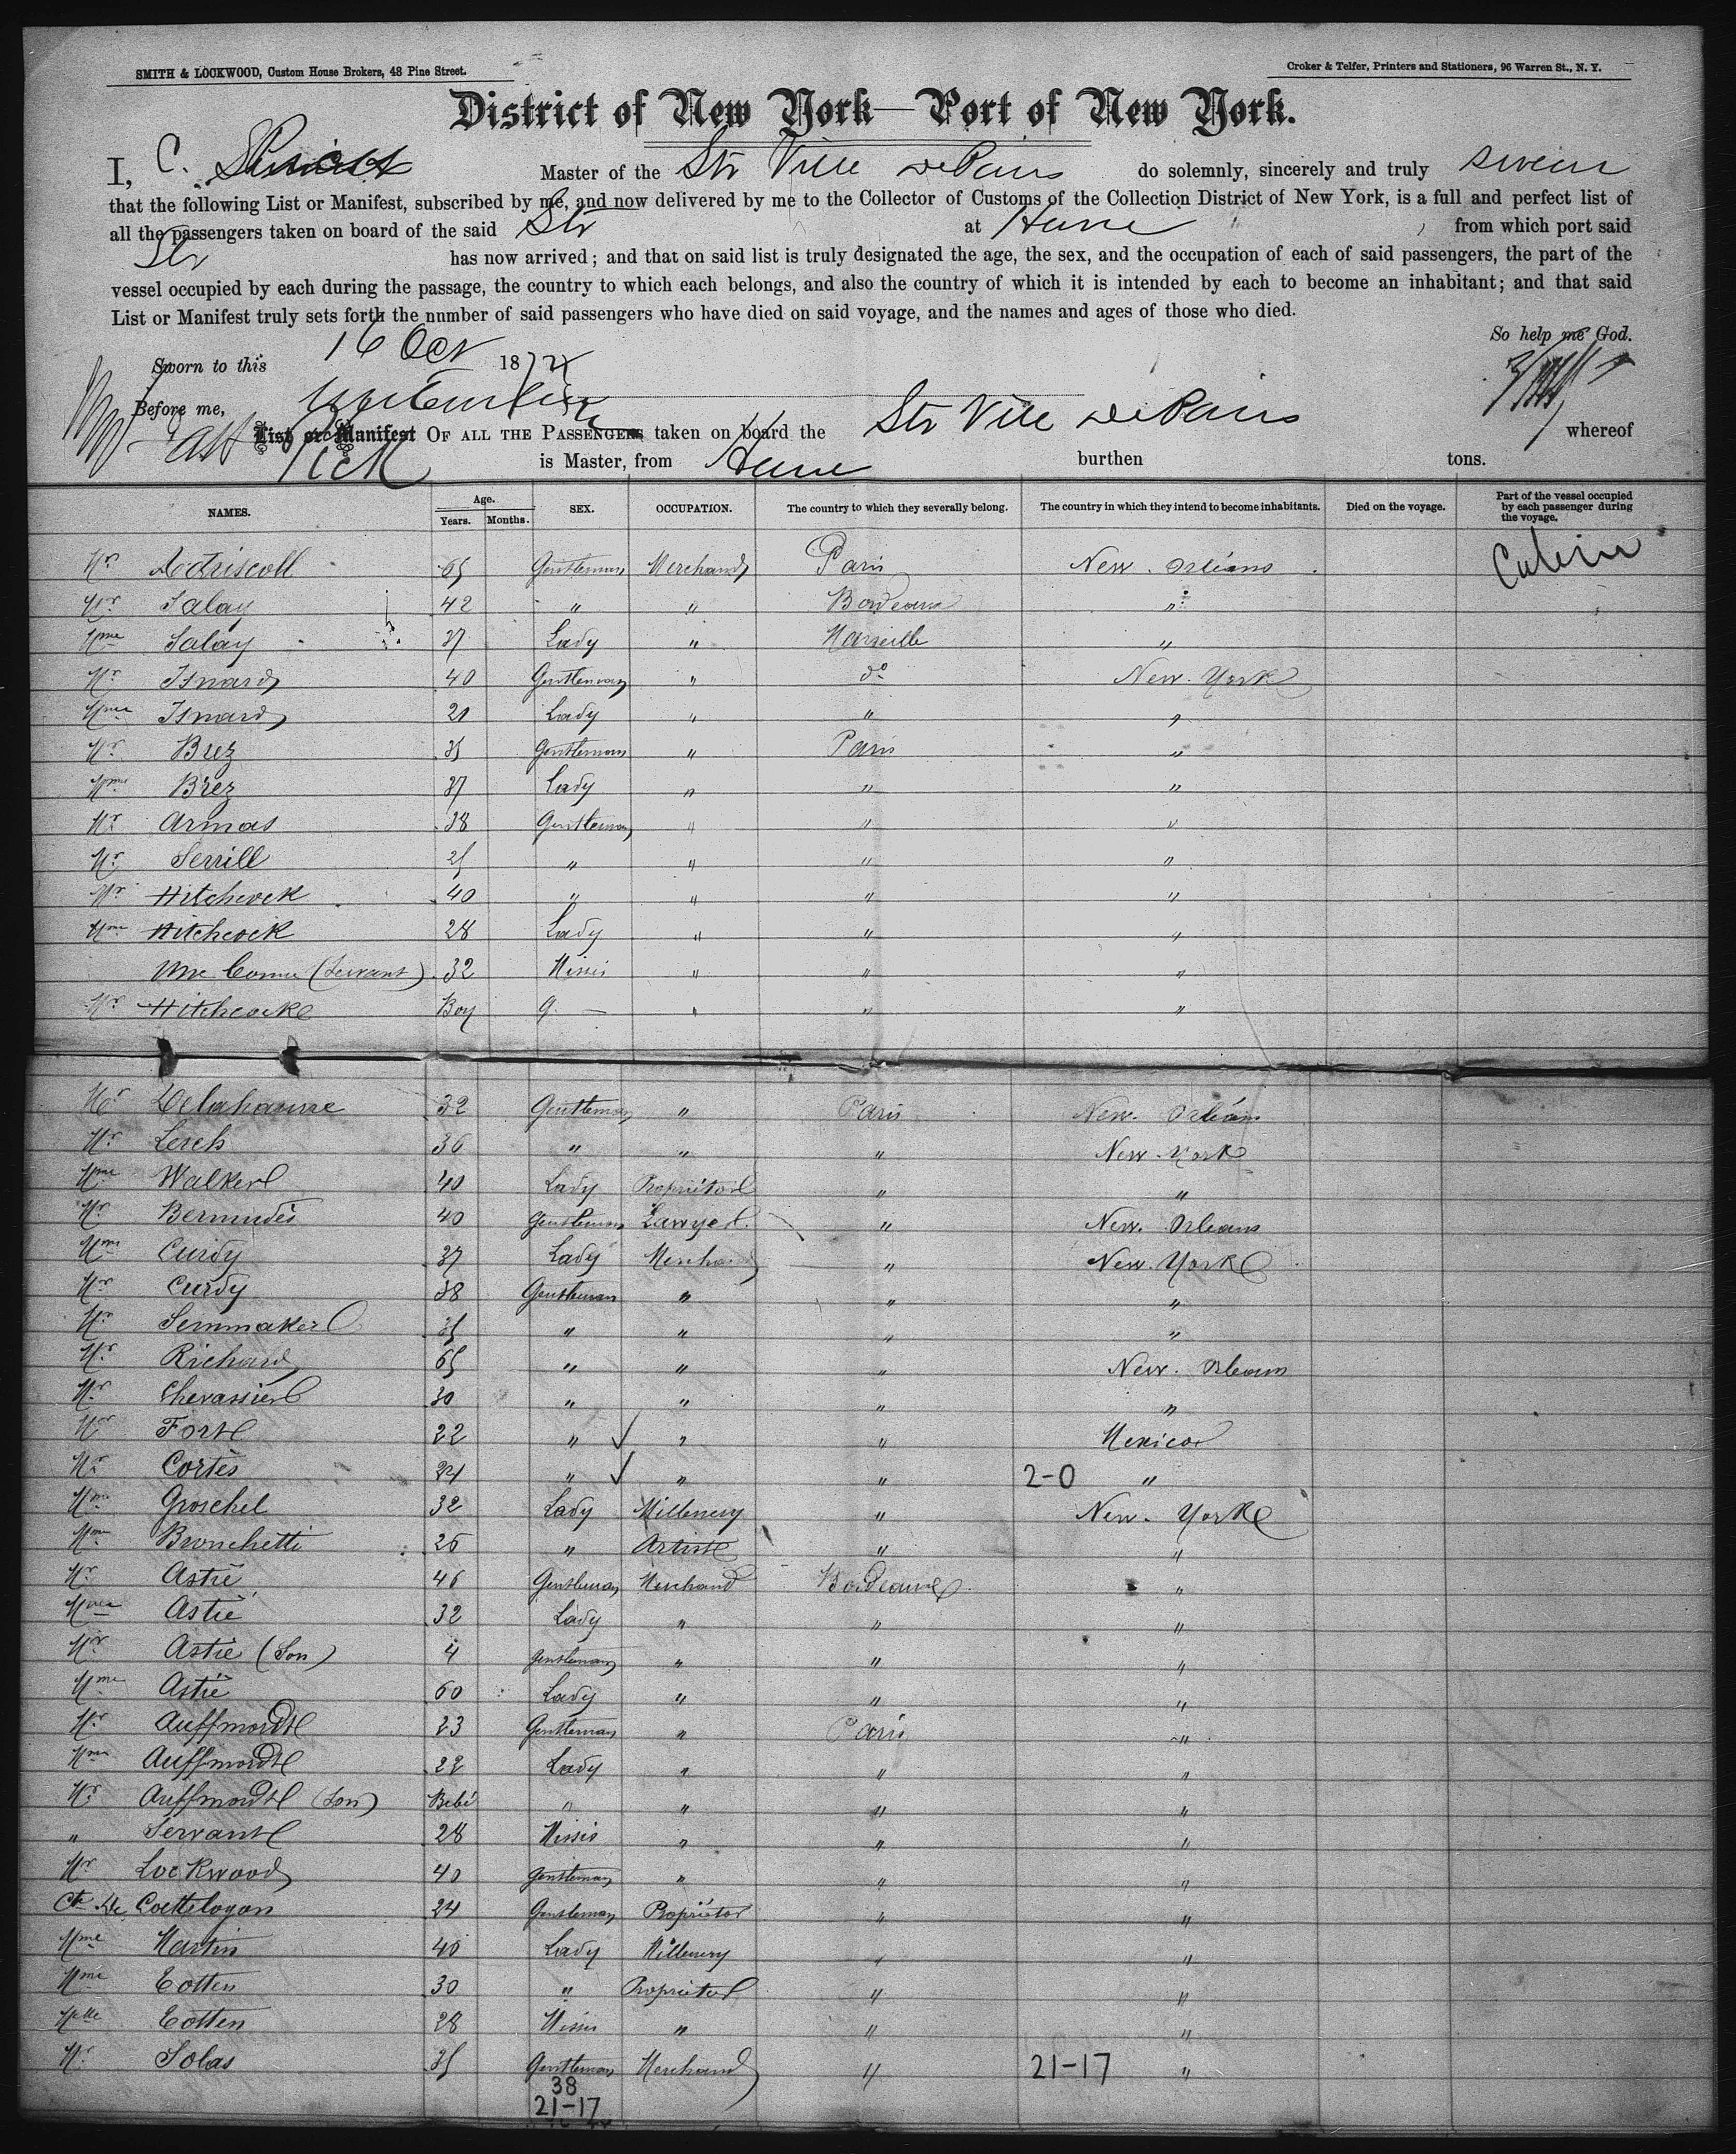 SMITH & LOCKWOOD, Custom House Brokers, 48 Pine Street.
Croker & Telfer, Printers and Stationers, 96 Warren St., N. Y.
District of New York—Port of New York.
I, C. Master of the Str Ville de Paris do solemnly, sincerely and truly swear
that the following List or Manifest, subscribed by me, and now delivered by me to the Collector of Customs of the Collection District of New York, is a full and perfect list of
all the passengers taken on board of the said Str at Havre from which port said
Str has now arrived; and that on said list is truly designated the age, the sex, and the occupation of each of said passengers, the part of the
vessel occupied by each during the passage, the country to which each belongs, and also the country of which it is intended by each to become an inhabitant; and that said
List or Manifest truly sets forth the number of said passengers who have died on said voyage, and the names and ages of those who died.
So help me God.
Sworn to this 16 Oct 187
Before me,
List or Manifest OF ALL THE PASSENGERS taken on board the Str Ville de Paris whereof
is Master, from Havre burthen tons.
NAMES. Age. Years. Months. SEX. OCCUPATION. The country to which they severally belong. The country in which they intend to become inhabitants. Died on the voyage. Part of the vessel occupied by each passenger during the voyage.
Mr 65 Gentleman Merchand Paris New. Orléans Cabin
Mr Salay 42 " " Bordeaux "
Mme Salay 37 Lady " Marseille "
Mr Isnard 40 Gentleman " do New. York
Mme Isnard 21 Lady " " "
Mr Brez 35 Gentleman " Paris "
Mme Brez 37 Lady " " "
Mr Armas 38 Gentleman " " "
Mr Serrill 25 " " " "
Mr Hitchcock 40 " " " "
Mme Hitchcock 28 Lady " " "
(Servant) 32 Missis " " "
Mr Hitchcocke Boy g. " " "
Mr 32 Gentleman " Paris New. Orléans
Mr Lerch 36 " " " New. York
Mme Walker 40 Lady Proprietor " "
Mr Bermudès 40 Gentleman Lawyer " New. Orleans
Mme Curdy 37 Lady Merchand " New. York
Mr Curdy 38 Gentleman " " "
Mr Semmaker 35 " " " "
Mr Richard 65 " " " New. Orleans
Mr Chevassier 30 " " " "
Mr Fort 22 " " " Mexico
Mr Cortès 24 " " " 2-0 "
Mme Groschel 32 Lady Millenery " New. York
Mme Bronchetti 26 " Artist " "
Mr Astié 46 Gentleman Merchand Bordeaux "
Mme Astié 32 Lady " " "
Mr Astié (Son) 4 gentleman " " "
Mme Astié 60 Lady " " "
Mr Auffmordt 23 Gentleman " Paris "
Mme Auffmordt 22 Lady " " "
Mr Auffmordt (Son) Bebé " " " "
" Servant 28 Missis " " "
Mr Lockwood 40 gentleman " " "
Cte de Coettlogon 24 Gentleman Proprietor " "
Mme Martin 40 Lady Millenery " "
Mme Cotten 30 " Proprietor " "
Melle Cotten 28 Missis " " "
Mr Solas 35 Gentleman Merchand " 21-17 "
38
21-17